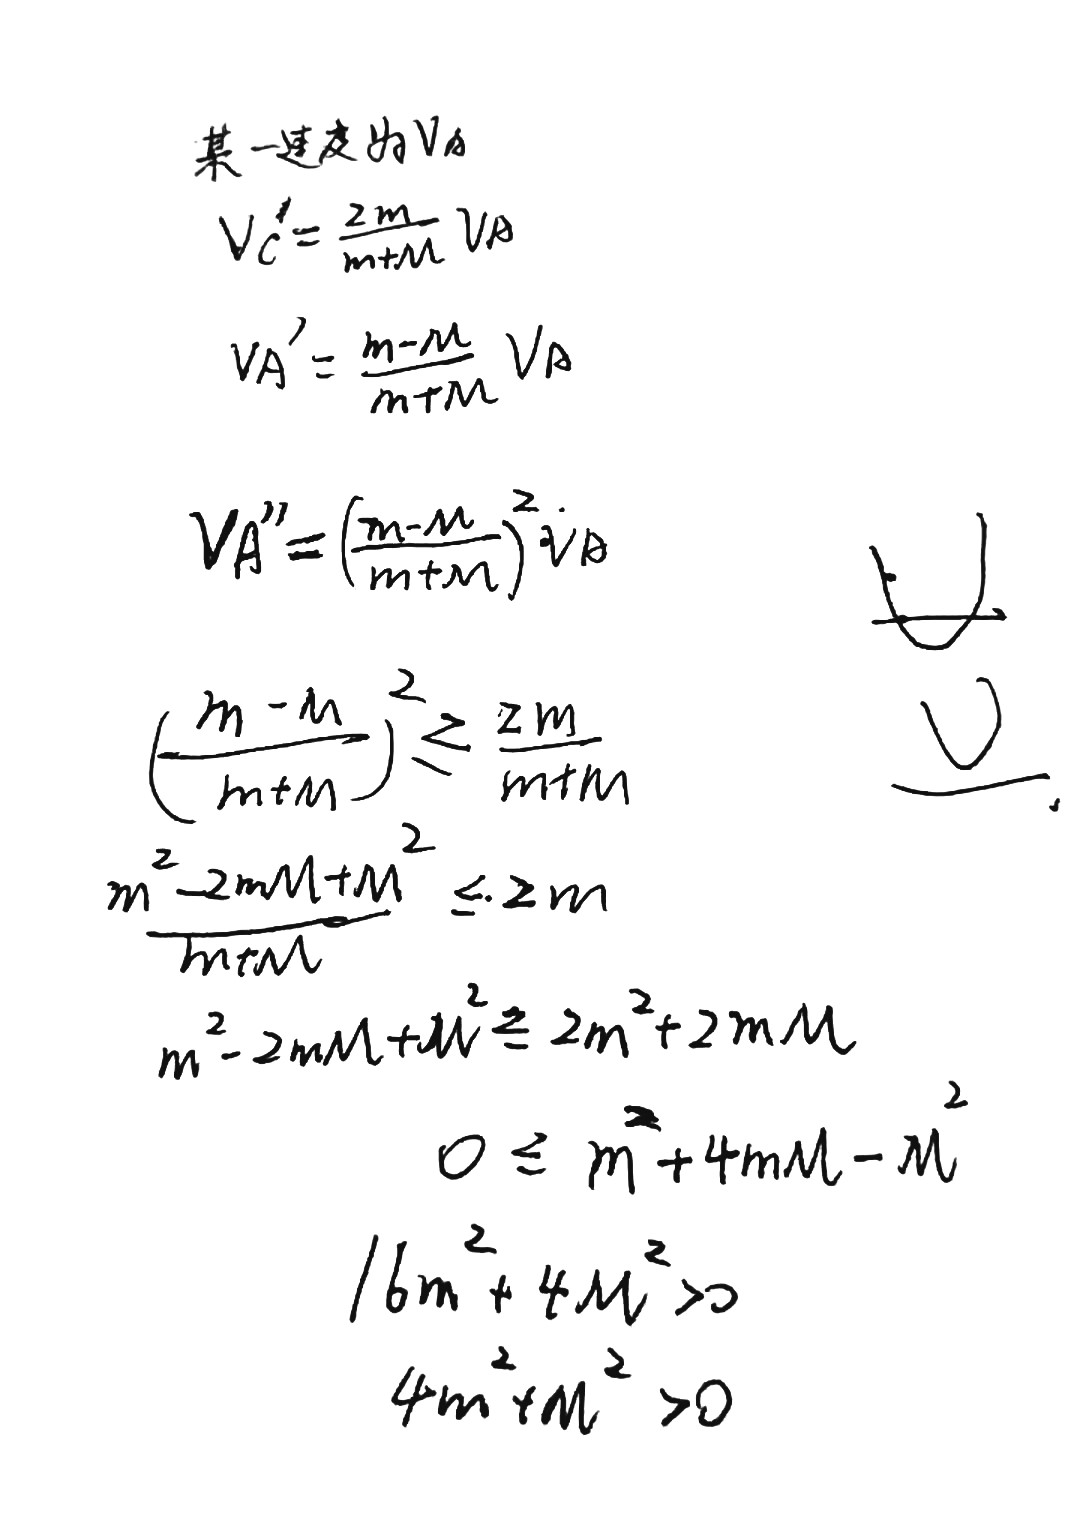 某一速度为VA
VC' = 2m/(m+M) VA
VA' = (m-M)/(m+M) VA
VA'' = ((m-M)/(m+M))² · VA
((m-M)/(m+M))² ≤ 2m/(m+M)
(m²-2mM+M²)/(m+M) ≤ 2m
m²-2mM+M² ≤ 2m²+2mM
0 ≤ m²+4mM-M²
16m²+4M²>0
4m²+M²>0